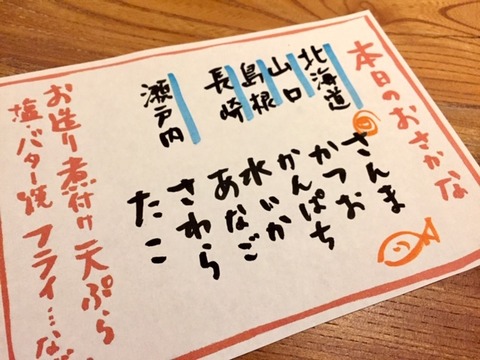 本日のおさかな
北海道 さんま
山口 かつお
島根 かんぱち
長崎 水いか
あなご
瀬戸内 さわら
たこ
お造り 煮付け 天ぷら
塩・バター焼 フライ…な